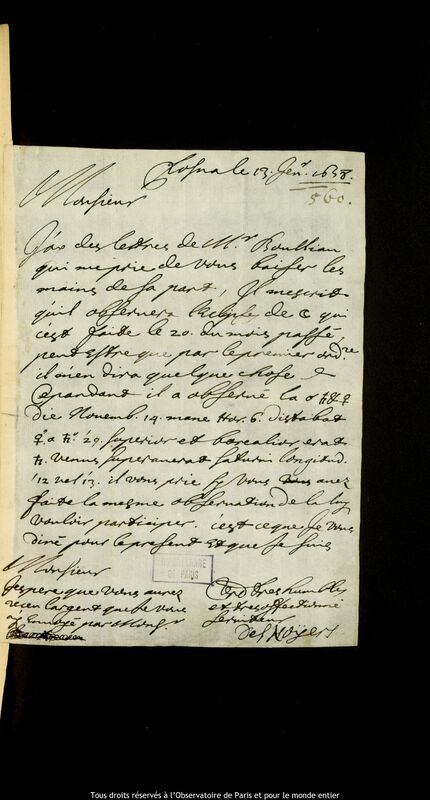 Posna le 13. Jenr. 1658.
560.
Monsieur
J'ay des lettres de Mr. Boulliau
qui me prie de vous baiser les
mains de sa part, Il mescrit
quil observera leclipse de ☾ qui
c'est faite le 20. du mois passé,
peut estre que par le premier ordre
il m'en dira quelque chose &
Cependant il a observé la ☌ ♄ & ♀
die Novemb. 14. mane Hor. 6. distabat
♀ a ♄ 29. superior et borealior erat
♄. Venus superaverat saturni longitud.
12 vel 13. il vous prie sy vous avez
faite la mesme observation de la luy
vouloir participer. c'est ce que je vous
diré pour le present Et que Je suis
Monsieur
Jespere que vous aurez
receu l'argent que je vous
ay Envoyé par Mons.r
Vre tres humble
et tres affectionné
serviteur
Des Noyers
OBSERVATOIRE
DE PARIS
Tous droits réservés à l'Observatoire de Paris et pour le monde entier